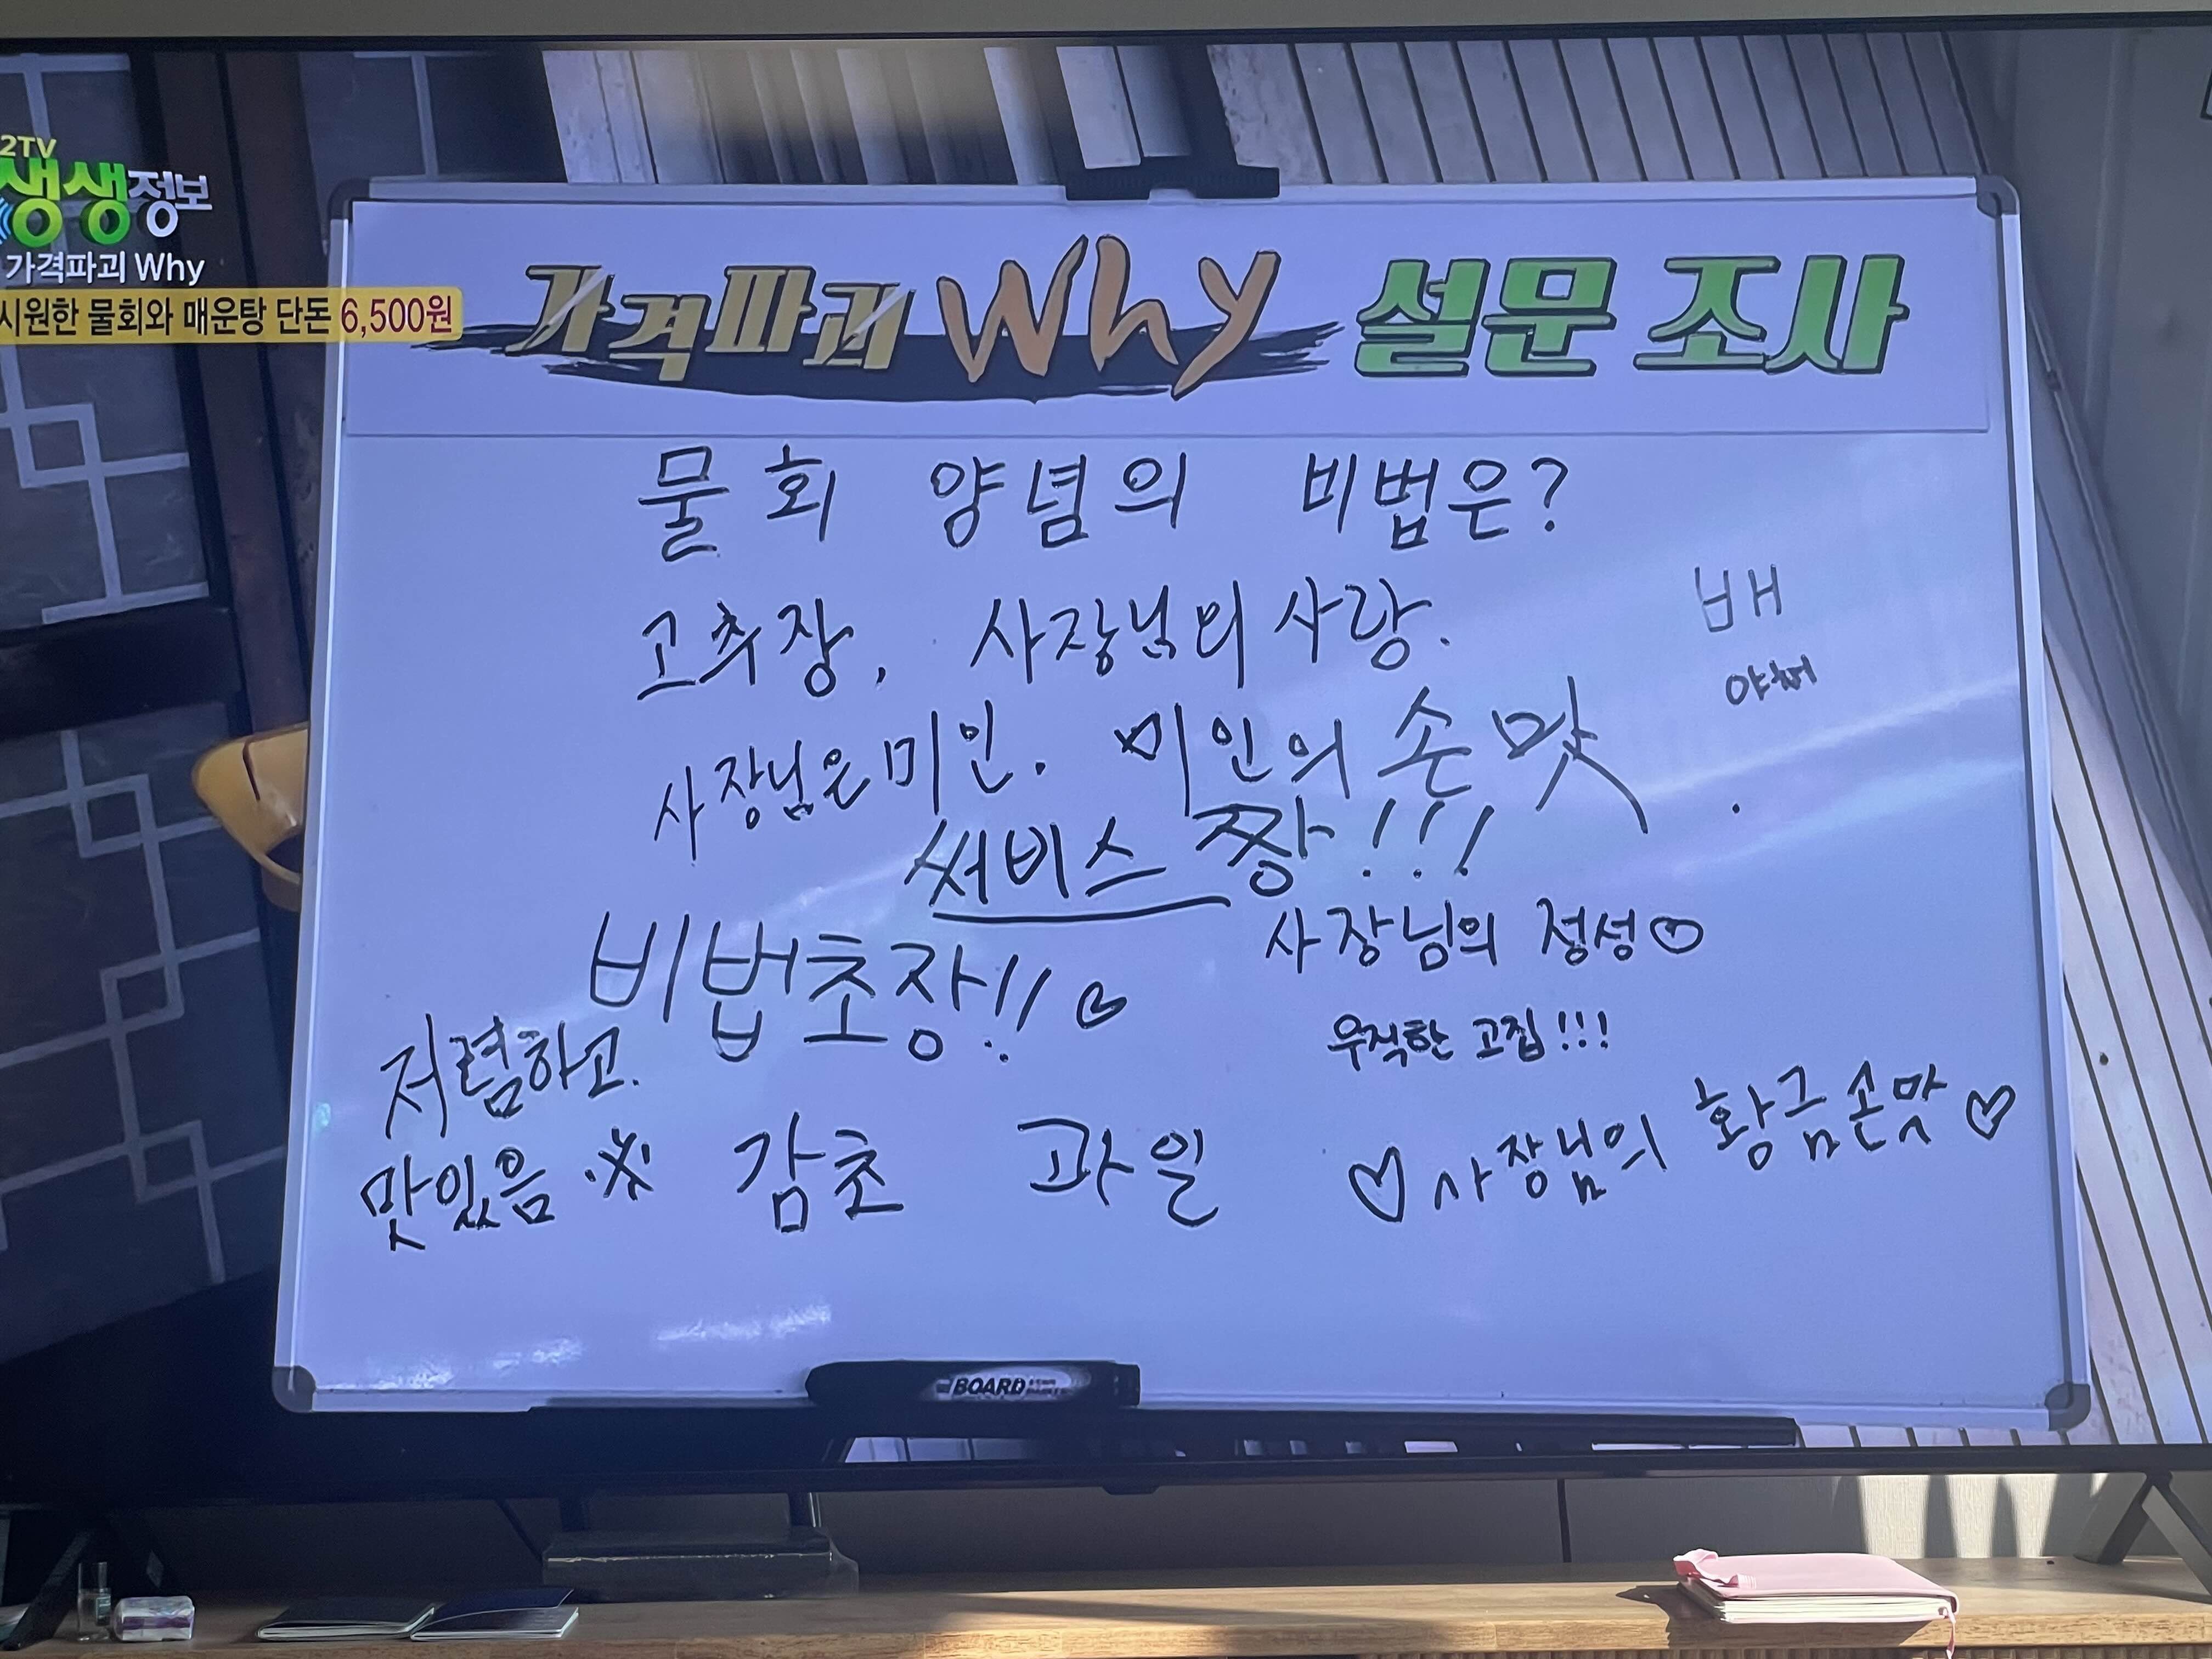 2TV
생생정보
가격파괴 Why
시원한 물회와 매운탕 단돈 6,500원
가격파괴 Why 설문 조사
물회 양념의 비법은?
고추장, 사장님의 사랑.
배
야채
사장님은 미인. 미인의 손맛
써비스 짱!!!
비법초장!!
사장님의 정성
우직한 고집!!!
저렴하고.
맛있음 ※
감초 과일
♡사장님의 황금손맛♡
BOARD